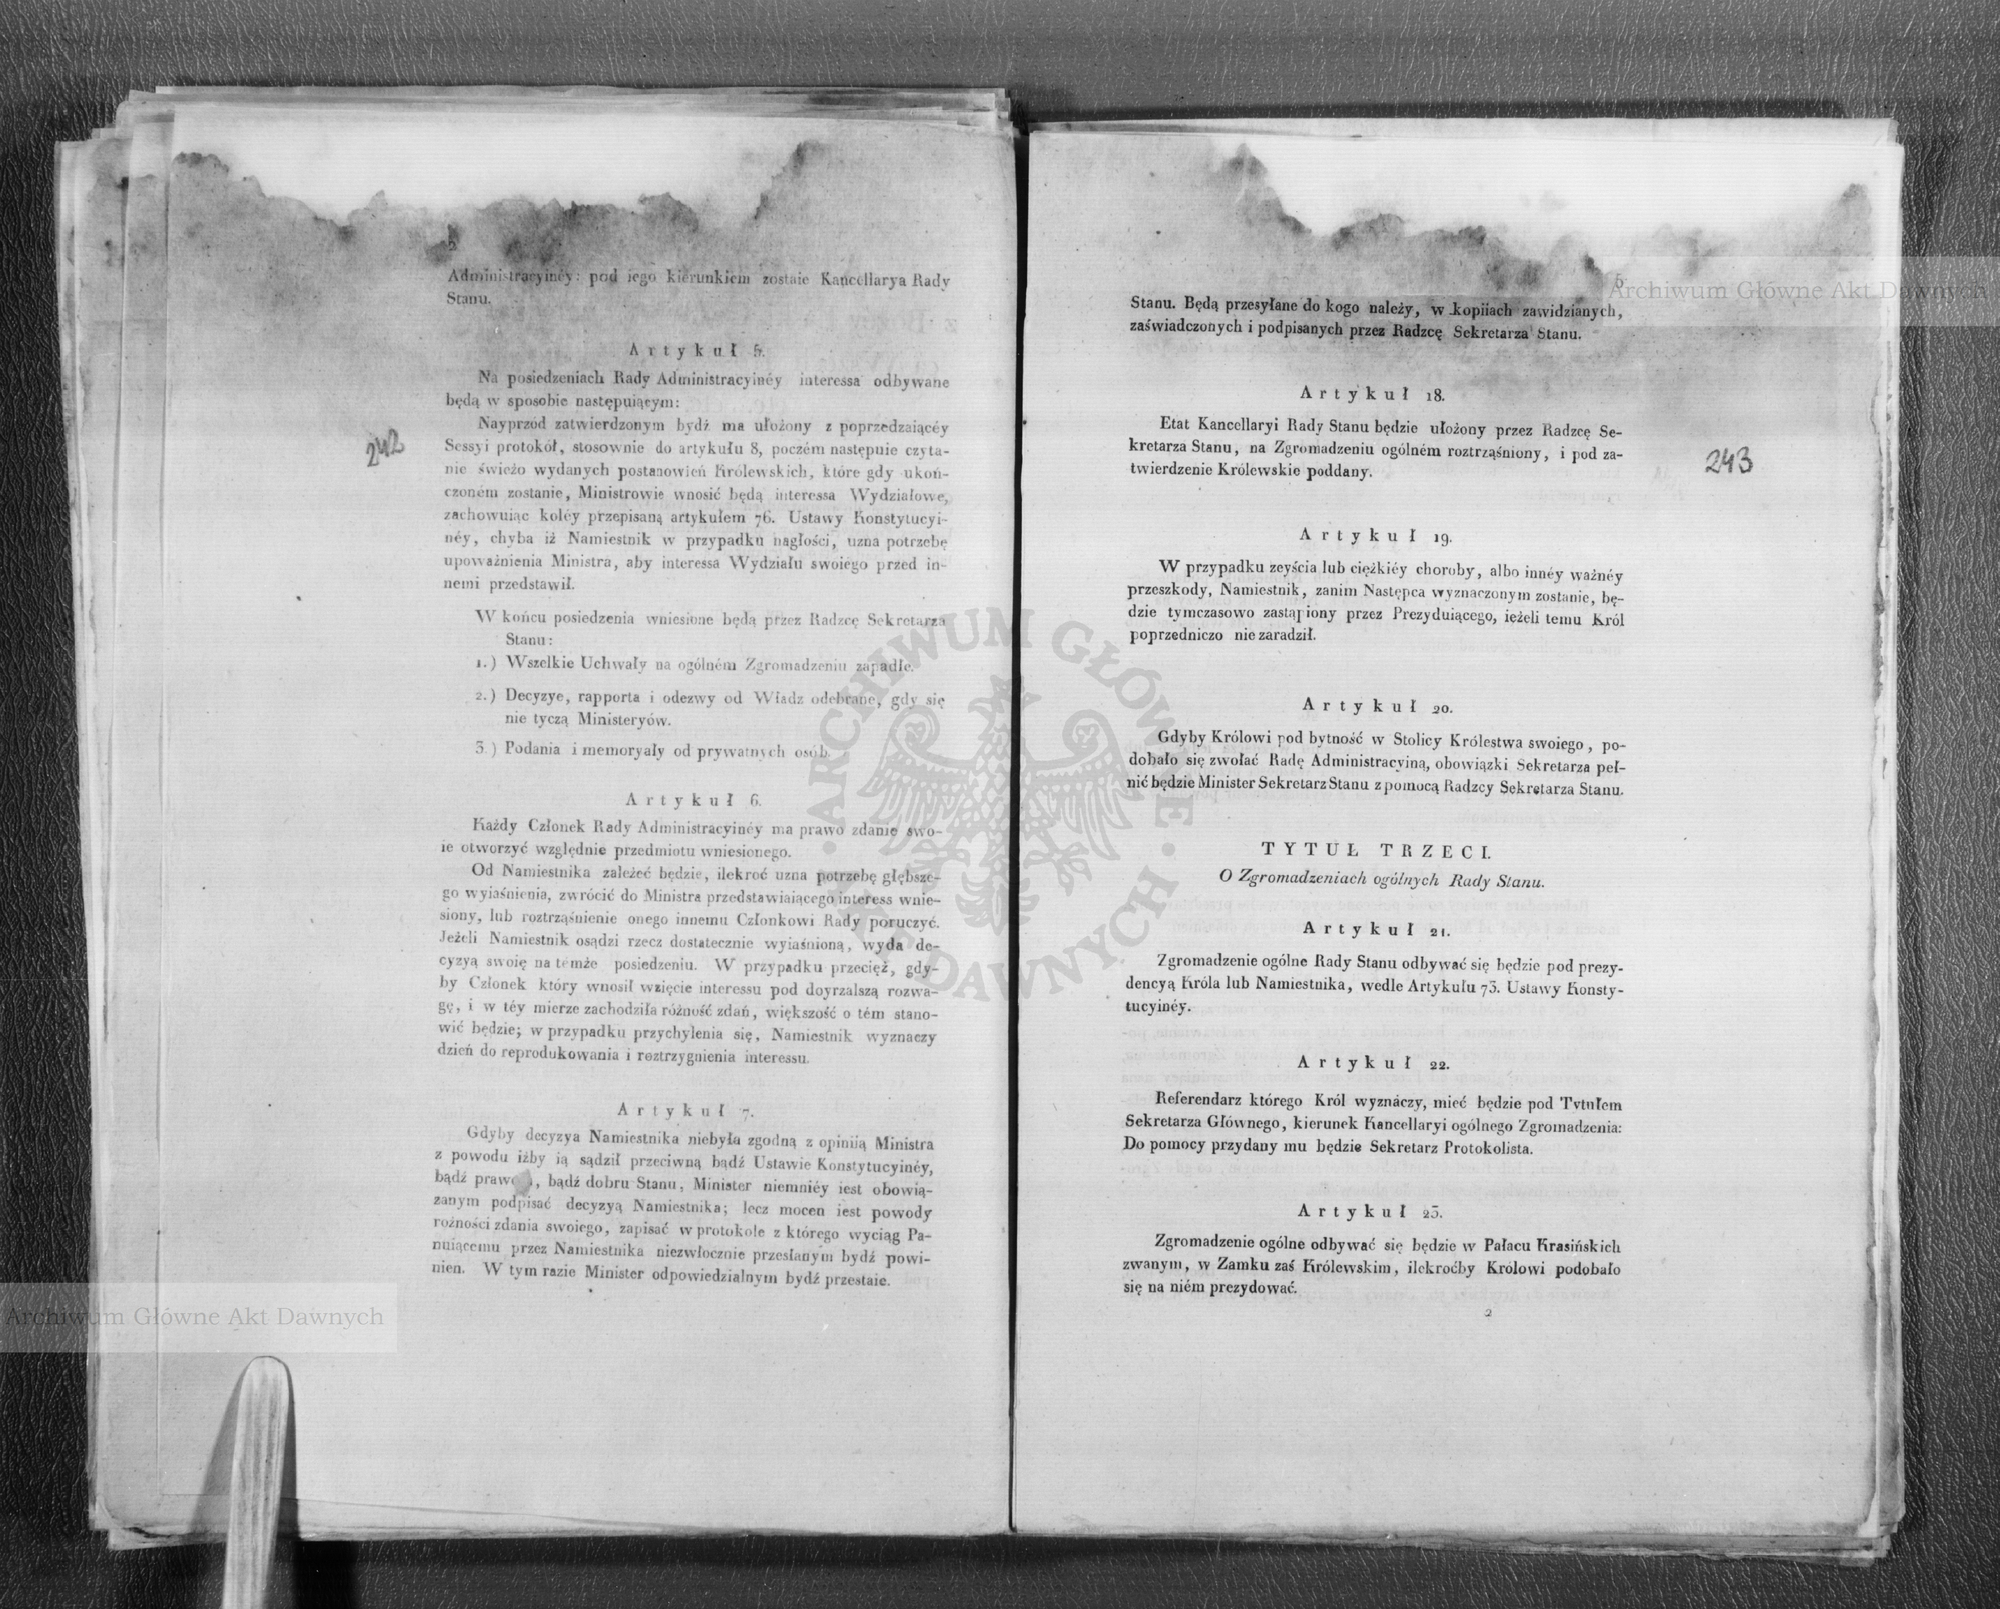 2
Administracyinéy: pod iego kierunkiem zostaie Kancellarya Rady
Stanu.
Artykuł 5.
Na posiedzeniach Rady Administracyinéy interessa odbywane
będą w sposobie następuiącym:
Nayprzód zatwierdzonym bydź ma ułożony z poprzedzaiącéy
Sessyi protokół, stosownie do artykułu 8, poczém następuie czyta-
nie świeżo wydanych postanowień Królewskich, które gdy ukoń-
czoném zostanie, Ministrowie wnosić będą interessa Wydziałowe,
zachowuiąc koléy przepisaną artykułem 76. Ustawy Konstytucyi-
néy, chyba iż Namiestnik w przypadku nagłości, uzna potrzebę
upoważnienia Ministra, aby interessa Wydziału swoiego przed in-
nemi przedstawił.
242
W końcu posiedzenia wniesione będą przez Radzcę Sekretarza
Stanu:
1.) Wszelkie Uchwały na ogólném Zgromadzeniu zapadłe.
2.) Decyzye, rapporta i odezwy od Władz odebrane, gdy się
nie tyczą Ministeryów.
3.) Podania i memoryały od prywatnych osób.
Artykuł 6.
Każdy Członek Rady Administracyinéy ma prawo zdanie swo-
ie otworzyć względnie przedmiotu wniesionego.
Od Namiestnika zależeć będzie, ilekroć uzna potrzebę głębsze-
go wyiaśnienia, zwrócić do Ministra przedstawiaiącego interess wnie-
siony, lub roztrząśnienie onego innemu Członkowi Rady poruczyć.
Jeżeli Namiestnik osądzi rzecz dostatecznie wyiaśnioną, wyda de-
cyzyą swoię na temże posiedzeniu. W przypadku przecięż, gdy-
by Członek który wnosił wzięcie interessu pod doyrzalszą rozwa-
gę, i w téy mierze zachodziła różność zdań, większość o tém stano-
wić będzie; w przypadku przychylenia się, Namiestnik wyznaczy
dzień do reprodukowania i roztrzygnienia interessu.
Artykuł 7.
Gdyby decyzya Namiestnika niebyła zgodną z opiniią Ministra
z powodu iżby ią sądził przeciwną bądź Ustawie Konstytucyinéy,
bądź praw, bądź dobru Stanu, Minister niemniéy iest obowią-
zanym podpisać decyzyą Namiestnika; lecz mocen iest powody
rożności zdania swoiego, zapisać w protokole z którego wyciąg Pa-
nuiącemu przez Namiestnika niezwłocznie przesłanym bydź powi-
nien. W tym razie Minister odpowiedzialnym bydź przestaie.
Archiwum Główne Akt Dawnych
5
Archiwum Główne Akt Dawnych
Stanu. Będą przesyłane do kogo należy, w kopiiach zawidzianych,
zaświadczonych i podpisanych przez Radzcę Sekretarza Stanu.
Artykuł 18.
Etat Kancellaryi Rady Stanu będzie ułożony przez Radzcę Se-
kretarza Stanu, na Zgromadzeniu ogólném roztrząśniony, i pod za-
twierdzenie Królewskie poddany.
243
Artykuł 19.
W przypadku zeyścia lub ciężkiéy choroby, albo innéy ważnéy
przeszkody, Namiestnik, zanim Następca wyznaczonym zostanie, bę-
dzie tymczasowo zastąpiony przez Prezyduiącego, ieżeli temu Król
poprzedniczo nie zaradził.
Artykuł 20.
Gdyby Królowi pod bytność w Stolicy Królestwa swoiego, po-
dobało się zwołać Radę Administracyiną, obowiązki Sekretarza peł-
nić będzie Minister Sekretarz Stanu z pomocą Radzcy Sekretarza Stanu.
TYTUŁ TRZECI.
O Zgromadzeniach ogólnych Rady Stanu.
Artykuł 21.
Zgromadzenie ogólne Rady Stanu odbywać się będzie pod prezy-
dencyą Króla lub Namiestnika, wedle Artykułu 73. Ustawy Konsty-
tucyinéy.
Artykuł 22.
Referendarz którego Król wyznaczy, mieć będzie pod Tytułem
Sekretarza Głównego, kierunek Kancellaryi ogólnego Zgromadzenia:
Do pomocy przydany mu będzie Sekretarz Protokolista.
Artykuł 23.
Zgromadzenie ogólne odbywać się będzie w Pałacu Krasińskich
zwanym, w Zamku zaś Królewskim, ilekroćby Królowi podobało
się na niém prezydować.
2
ARCHIWUM GŁÓWNE AKT DAWNYCH